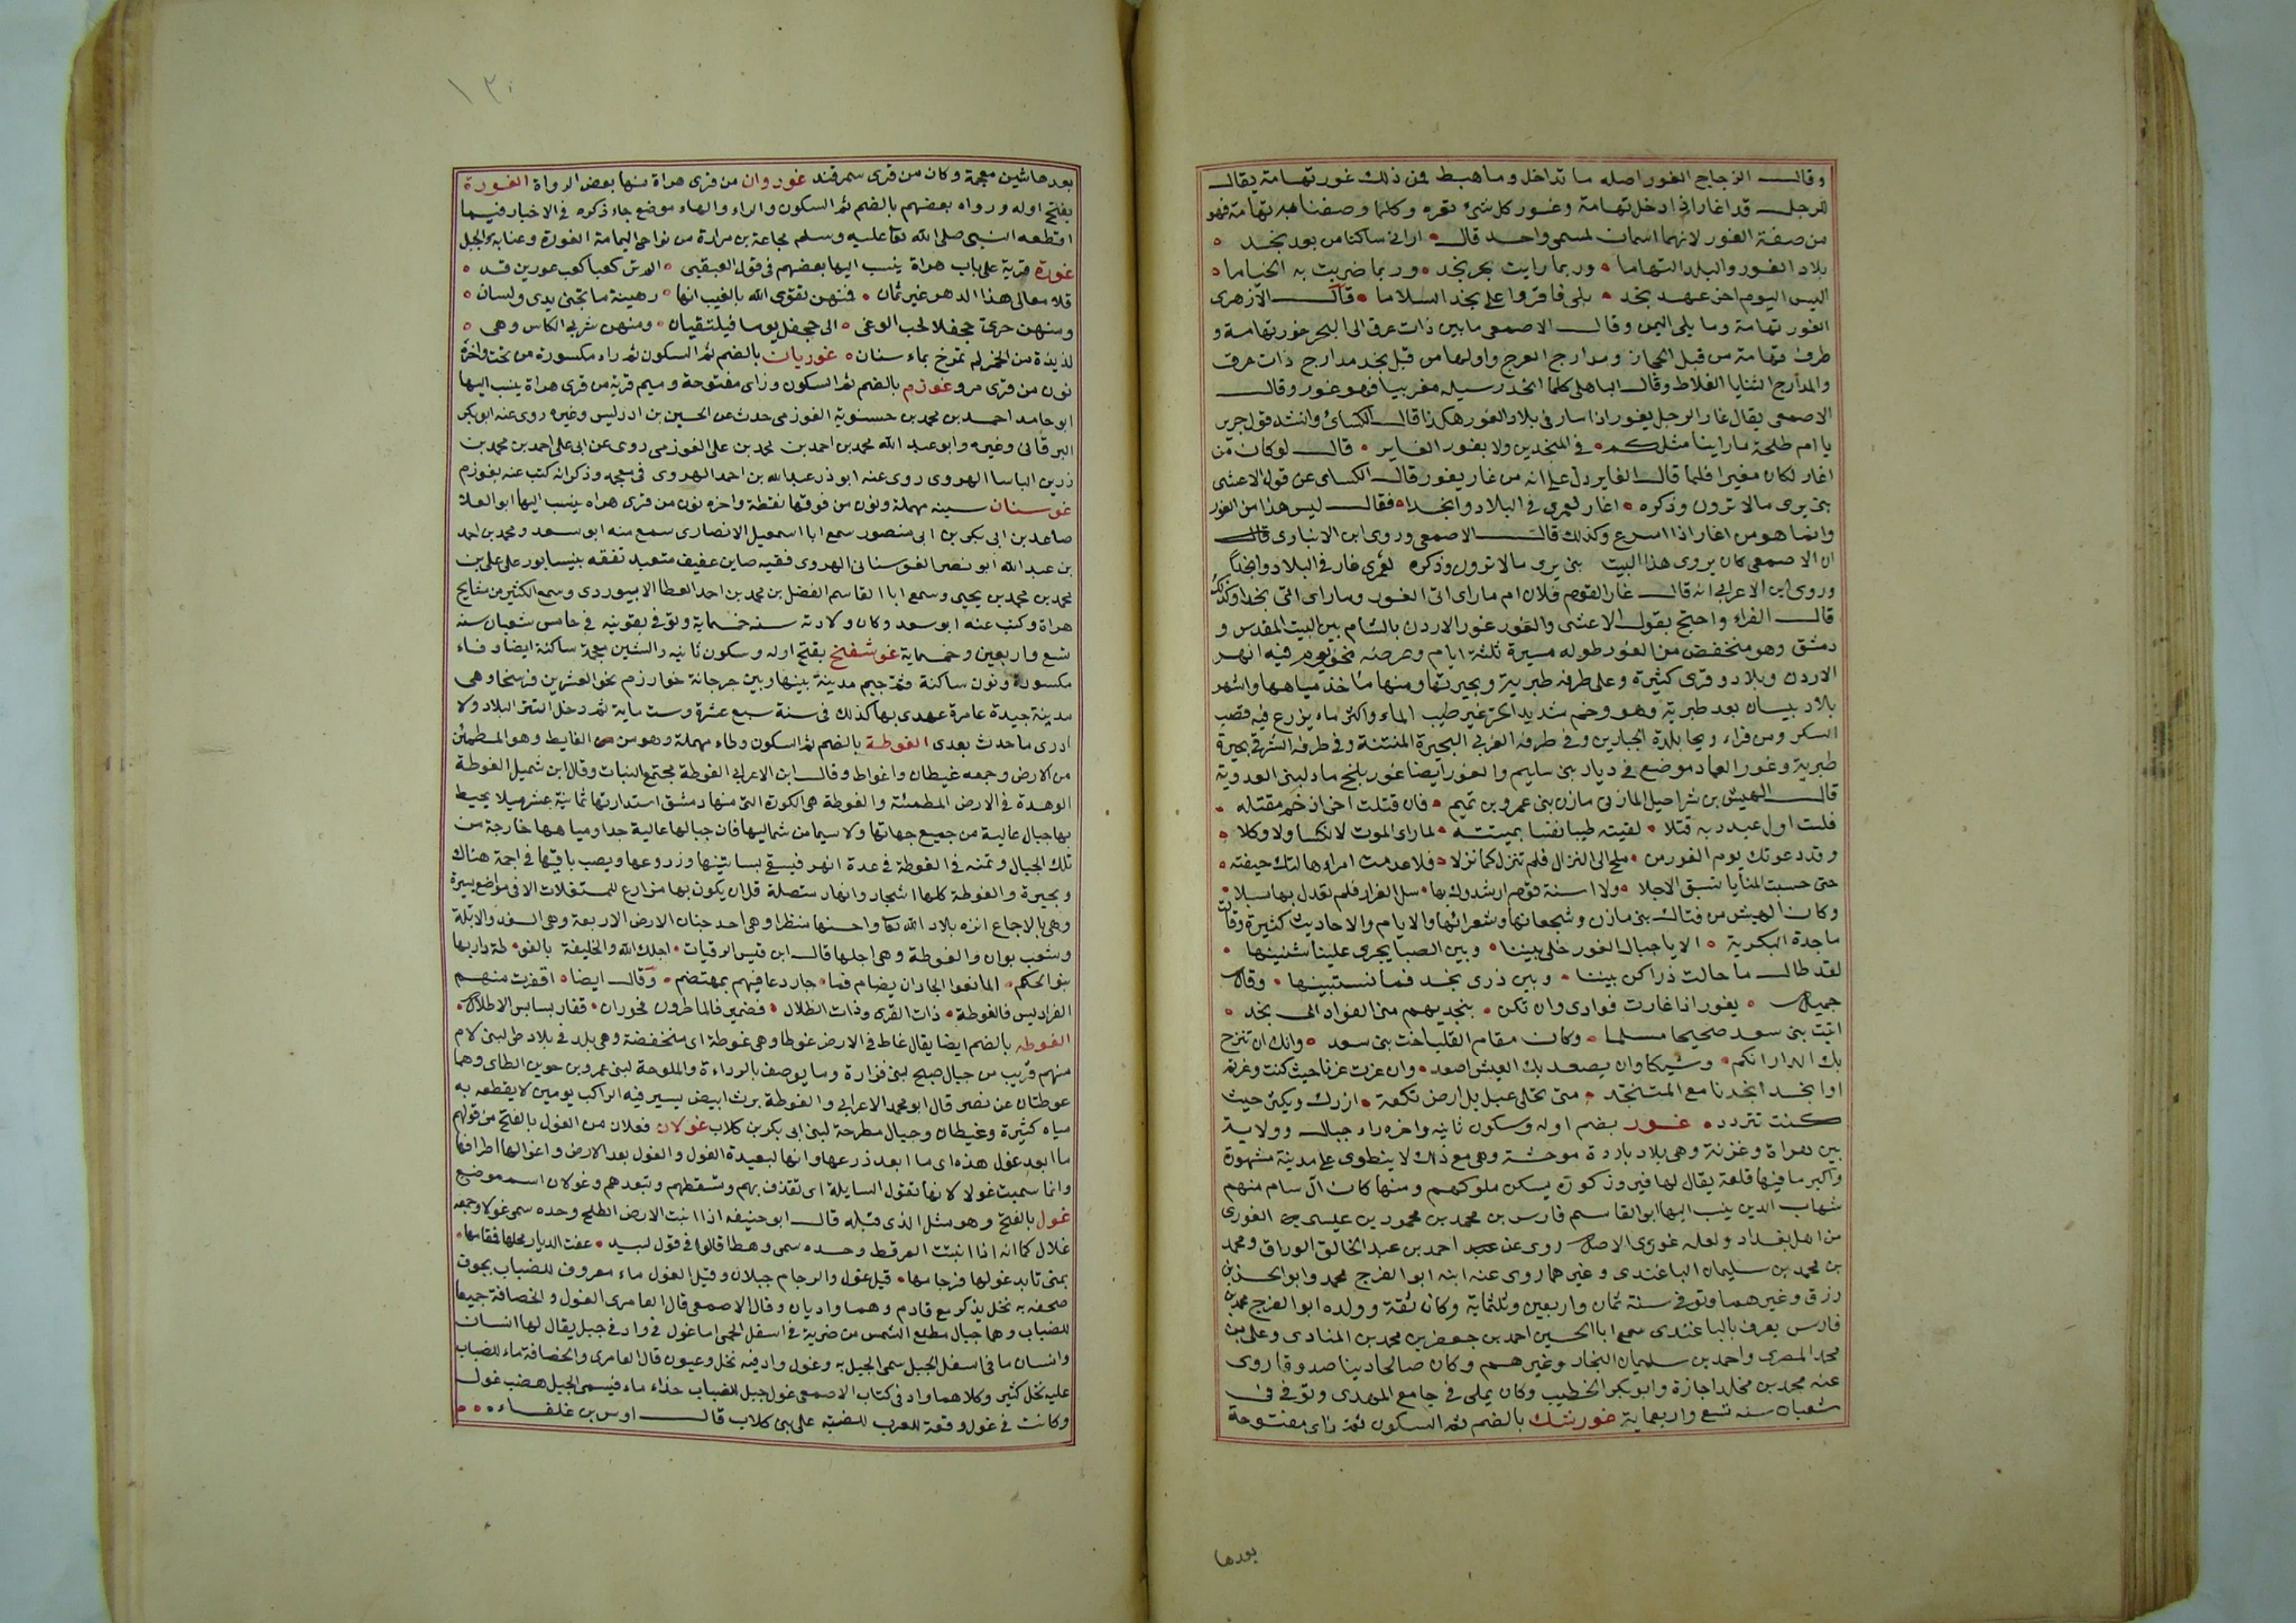 وقال الزجاج الغور اصله ما تداخل وما هبط فمن ذلك غور تهامة يقال
للرجل قد اغار اذا دخل تهامة وغور كل شئ قعره وكلما وصفنا به تهامة فهو
من صفة الغور لانهما اسمان لمسمى واحد قال اراني ساكنا من بعد نجد
بلاد الغور والبلد التهاما وربما رايت بحر نجد وربما ضربت به الخياما
اليس اليوم اخر عهد نجد بلى فاقروا على نجد السلاما قال الازهرى
الغور تهامة وما يلى اليمن وقال الاصمعى ما بين ذات عرق الى البحر غور تهامة و
طرف تهامة من قبل الحجاز ومدارج العرج واولها من قبل نجد مدارج ذات عرق
والمدارج الثنايا الغلاظ وقال الباهلى كلما انحدر سيله مغربيا فهو غور وقال
الاصمعى يقال غار الرجل يغور اذا سار فى بلاد الغور هكذا قال الكسائ وانشد قول جرير
يا ام طلحة ما راينا مثلكم فى المنجدين ولا بغور الغاير قال لو كان من
اغار لكان مغيرا فلما قال الغاير دل على انه من غار يغور قال الكساى عن قول الاعشى
نبى يرى مالا ترون وذكره اغار لعمرى فى البلاد وانجدا فقال ليس هذا من الغور
وانما هو من اغار اذا اسرع وكذلك قال الاصمعى وروى ابن الانبارى قال
ان الاصمعى كان يروى هذا البيت نبى يرى مالا ترون وذكره لعمرى غار فى البلاد وانجدا
وروى ابن الاعرابى انه قال غار القوم فلان ام ماراى اتى الغور وماراى اتى نجدا وكذلك
قال الفراء واحتج بقول الاعشى والغور غور الاردن بالشام بين البيت المقدس و
دمشق وهو منخفض من الغور طوله مسيرة ثلثة ايام وعرضه نحو يوم فيه انهر
الاردن وبلاد وقرى كثيرة وعلى طرفه طبرية وبحيرتها ومنها ماخذ مياهها واشهر
بلاد بيسان بعد طبرية وهو وخم شديد الحر غير طيب الماء واكثر ماء يزرع فيه قصب
السكر ومن قراه ريحا بلدة الجبارين وفى طرفه الغربى البحيرة المنتنة وفى طرفه الشرقى بحيرة
طبرية وغور العماد موضع فى ديار بنى سليم والغور ايضا غور بلخ ماء لبنى العدوية
قال الهيش بن شراحيل المازنى مازن بنى عمرو بن تميم فان قتلت اخى اذ حم مقتله
فلست اول عبد ربه قتلا لقيته طيبا نفسا بميتته لما راى الموت لا نكسا ولا وكلا
وقد دعوتك يوم الغور من ملح الى النزال فلم تنزل كما نزلا فلا عدمت امرء هالتك خيفته
حتى حسبت المنايا تسبق الاجلا ولا اسنة قوم ارشدوك بها سبل الفرار فلم تعدل بها سبلا
وكان الهيش من فتاك بنى مازن وشجعانها وشعرائها والايام والاحاديث كثيرة وقالت
ماجدة البكرية الا يا جبال الغور خلى بيننا وبين الصبا يجرى علينا شنينها
لقد طال ما حالت ذراكن بيننا وبين ذرى نجد فما نستبينها وقال
جميل يغور اذا غارت فوادى وان تكن بنجد يهم منى الفواد الى نجد
اتيت بنى سعد صحيحا مسلما وكان مقام القلب اخت بنى سعد وانك ان تنزح
بك الدار اتكم وشيكا وان يصعد بك العيش اصعد وان عزت عزنا حيث كنت وغرته
او انجد انجدنا مع المتنجد متى تحلى عبل بل ارض تكعة ازرك ويكثر حيث
كنت تتردد غور بضم اوله وسكون ثانيه واخره راء جبال وولاية
بين هراة وغزنة وهى بلاد باردة موحشة وهى مع ذلك لا ينطوى على مدينة مشهورة
واكبر ما فيها قلعة يقال لها فيروز كوه يسكن ملوكهم ومنها كان آل سام منهم
شهاب الدين ينسب اليها ابو القاسم فارس بن محمد بن محمود بن عيسى الغورى
من اهل بغداد ولعله غورى الاصل روى عن احمد بن عبد الخالق الوراق ومحمد
بن محمد بن سليمان الباغندى وغيرهما روى عنه ابنه ابو الفرج محمد وابو الحسن بن
رزق وغيرهما وتوفى سنة ثمان واربعين وثلثماية وكان ثقة وولده ابو الفرج محمد بن
فارس يعرف بالباغندى سمع ابا الحسين احمد بن جعفر بن محمد بن المنادى وعلى بن
محمد المصرى واحمد بن سليمان النجار وغيرهم وكان صالحا دينا صدوقا روى
عنه محمد بن مخلد اجازة وابو بكر الخطيب وكان يملى فى جامع المهدى وتوفى فى
شعبان سنه تسع واربعماية غورشك بالضم ثم السكون ثم زاى مفتوحة
بعدها
١٣٠
بعدها شين معجمة وكان من قرى سمرقند غوروان من قرى هراة منها بعض الرواة الغورة
بفتح اوله ورواه بعضهم بالضم ثم السكون والراء والهاء موضع جاء ذكره فى الاخبار فيما
اقطعه النبى صلى الله تعا عليه وسلم مجاعة بن مرارة من نواحى اليمامة الغورة وعنابه والجبل
غورة قرية على باب هراة ينسب اليها بعضهم فى قول العبقيى الم تر كعبا كعب غورين قد
قلا معالى هذا الدهر غير ثمان فمنهن تقوى الله بالغيب انها رهينة ما تجنى يدى ولسان
ومنهن جرى جحفلا لجب الوغى الى جحفل يوما فيلتقيان ومنهن شربى الكاس وهى
لذيذة من الخمر لم تمزج بماء سنان غوريان بالضم ثم السكون ثم راء مكسورة من تحت واخره
نون من قرى مرو غوزم بالضم ثم السكون وزاى مفتوحة وميم قرية من قرى هراة ينسب اليها
ابو حامد احمد بن محمد بن حسنوية الغوزمى حدث عن الحسين بن ادريس وغيره روى عنه ابو بكر
البرقانى وغيره وابو عبد الله محمد بن احمد بن محمد بن على الغوزمى روى عن ابى على احمد بن محمد بن
زرين الباسا الهروى روى عنه ابو ذر عبد الله بن احمد الهروى فى معجمه وذكر انه كتب عنه بغوزم
غوسنان سينه مهملة ونون من فوقها نقطة واخره نون من قرى هراه ينسب اليها ابو العلا
صاعد بن ابى بكر بن ابى منصور سمع ابا اسمعيل الانصارى سمع منه ابو سعد ومحمد بن احمد
بن عبد الله ابو نصر الغوسنانى الهروى فقيه صاين عفيف متعبد تفقه بنيسابور على على بن
محمد بن محمد بن يحيى وسمع ابا القاسم الفضل بن محمد بن احمد العطا الابيوردى وسمع الكثير من مشايخ
هراة وكتب عنه ابو سعد وكان ولادته سنه خمسماية وتوفى بغوينه فى خامس شعبان سنه
تسع واربعين وخمسماية غوشفنج بفتح اوله وسكون ثانيه والشين معجمة ساكنة ايضا وفاء
مكسورة ونون ساكنة ثم جيم مدينة بينها وبين جرجانة خوارزم نحو العشرين فرسخا وهى
مدينة جيدة عامرة عهدى بها كذلك فى سنة سبع عشرة وست ماية ثم دخل التتر البلاد ولا
ادرى ما حدث بعدى الغوطة بالضم ثم السكون وطاء مهملة وهو من الغايط وهو المطمئن
من الارض وجمعه غيطان واغواط وقال ابن الاعرابى الغوطة مجتمع النبات وقال ابن شميل الغوطة
الوهدة فى الارض المطمئنة والغوطة هى الكورة التى منها دمشق استدارتها ثمانية عشر ميلا يحيط
بها جبال عالية من جميع جهاتها ولا سيما من شماليها فان جبالها عالية جدا ومياهها خارجة من
تلك الجبال وتمتد فى الغوطة فى عدة انهر فيسقى بساتينها وزروعها ويصب باقيها فى اجمة هناك
وبحيرة والغوطة كلها اشجار وانهار متصلة قل ان يكون بها مزارع للمستغلات الا فى مواضع يسيرة
وهى بالاجماع انزه بلاد الله تعا واحسنها منظرا وهى احد جنان الارض الاربعة وهى السغد والابلة
وشعب بوان والغوطة وهى اجلها قال ابن قيس الرقيات اجلك الله والخليفة بالغو طة دار بها
بنو الحكم المانعوا الجار ان يضام فما جار دعا فيهم بمهتضم وقال ايضا اقفرت منهم
الفراديس فالغوطة ذات القرى وذات الظلال فضمير فالماطرون فحوران قفار بسابس الاطلال
الغوطه بالضم ايضا يقال غاط فى الارض غوطا وهى غوطة اى منخفضة وهى بلد فى بلاد طى لبنى لام
منهم قريب من جبال صبح لبنى فزارة وما يوصف بالرداءة والملوحة لبنى عمرو بن جوين الطاى وهما
غوطتان عن نصر قال ابو محمد الاعرابى والغوطة برث ابيض يسير فيه الراكب يومين لا يقطعه به
مياه كثيرة وغيطان وجبال مطرحة لبنى ابى بكر بن كلاب غولان فعلان من الغول بالفتح من قولهم
ما ابعد غول هذه اى ما ابعد ذرعها وانها لبعيدة الغول والغول بعد الارض واغوالها اطرافها
وانما سميت غولا لانها تغول السابلة اى تقذف بهم وتسقطهم وتبعدهم وغولان اسم موضع
غول بالفتح وهو مثل الذى قبله قال ابو حنيفه اذا انبت الارض الطلح وحده سمى غولا وجمعه
غلال كما انه اذا انبتت العرفط وحده سمى وهطا قالوا فى قول لبيد عفت الديار محلها فمقامها
بمنى تابد غولها فرجامها قيل غول والرجام جبلان وقيل الغول ماء معروف للضباب بجوف
صحفه به نخل يذكر مع قادم وهما واديان وقال الاصمعى قال العامرى الغول والخصافة جميعا
للضباب وهما جبال مطلع الشمس من ضرية فى اسفل الحمى اما غول فى واد فى جبل يقال لها انسان
وانسان ماء فى اسفل الجبل سمى الجبل به وغول واد فيه نخل وعيون قال العامرى والخصافة ماء للضباب
عليه نخل كثير وكلاهما واد فى كتاب الاصمعى غول جبل للضباب حذاء ماء فيسمى الجبل هضب غول
وكانت فى غول وقعة للعرب للضبه على بنى كلاب قال اوس بن غلفاء